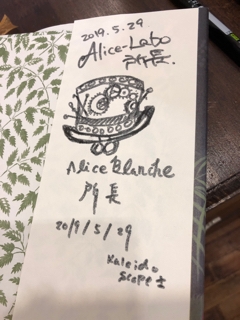 2019.5.29.
Alice-Labo
所長.
Alice Blanche
所長
2019/5/29
Kaleido
scape士